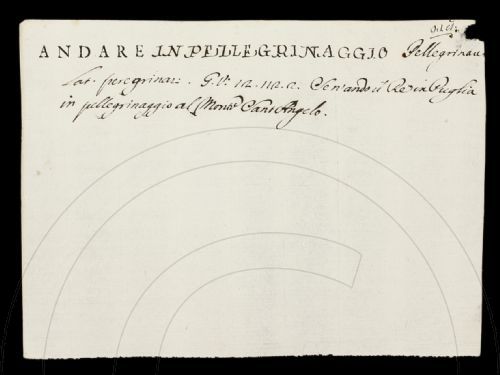 ANDARE IN PELLEGRINAGGIO Pellegrinar
Lat. peregrinari. G. V. 12. 112. 2. Se n'andò il Re in Puglia
in pellegrinaggio al Monte Sant Angelo.